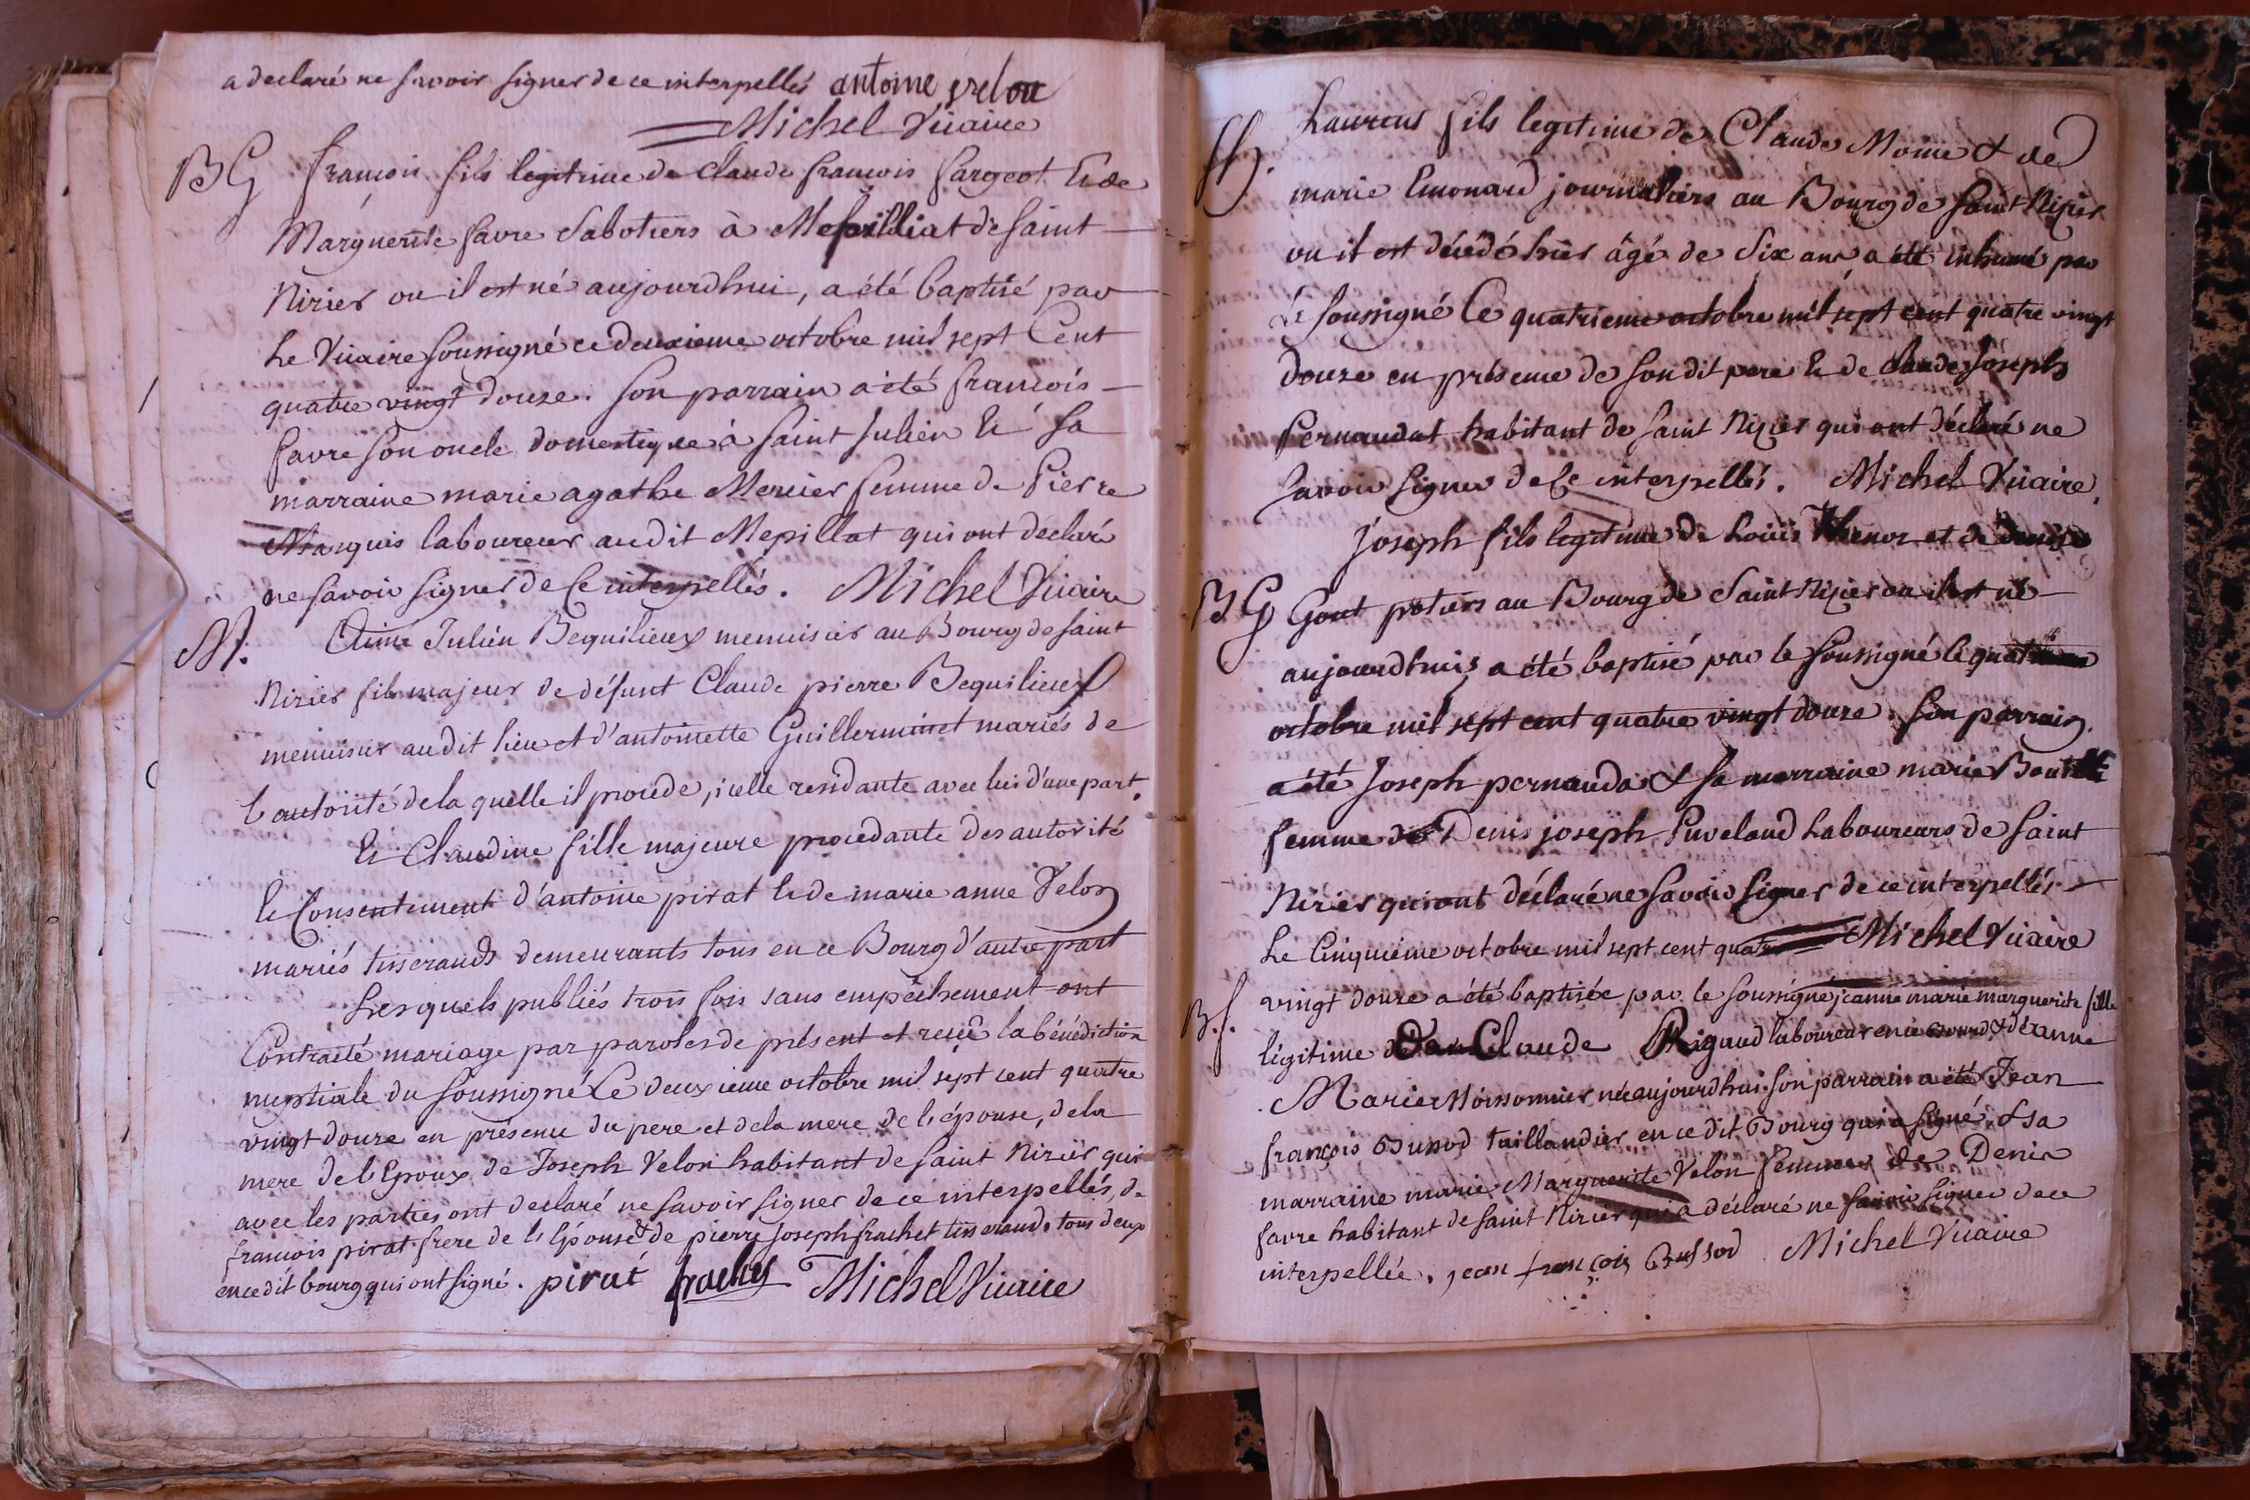 a declaré ne savoir signer de ce interpellés antoine velon
Michel Vicaire
BG françois fils legitime de claude françois fargeot et de
Marguerite favre sabotiers à Mepilliat de saint
Nizier ou il est né aujourdhui, a été baptisé par
Le Vicaire soussigné ce deuxieme octobre mil sept Cent
quatre vingt douze. son parrain a été françois
favre son oncle domestique à saint julien et sa
marraine marie agathe Mercier femme de Pierre
Marquis laboureur audit Mepillat qui ont déclaré
ne savoir signer de ce interpellés. Michel Vicaire
M. Aimé Julien Bequilieux menuisier au Bourg de saint
Nizier fils majeur de défunt Claude pierre Bequilieux
menuisier audit lieu et d'antoinette Guillerminet mariés de
l'autorité de la quelle il procede, icelle residante avec lui d'une part.
Et Claudine fille majeure procedante des autorité
et Consentement d'antoine pirat et de marie anne Velon
mariés tisserands demeurants tous en ce Bourg d'autre part
Lesquels publiés trois fois sans empêchement ont
Contracté mariage par paroles de présent et reçu la bénédiction
nuptiale du soussigné Ce deuxieme octobre mil sept cent quatre
vingt douze en présence du pere et de la mere de l'épouse, de la
mere de l'Epoux de Joseph Velon habitant de saint Nizier qui
avec les parties ont declaré ne savoir signer de ce interpellés, de
francois pirat frere de l'Epouse & de pierre joseph frachet tisserands tous deux
en cedit bourg qui ont signé. pirat frachet Michel Vicaire
Laurent fils legitime de Claude Moine & de
marie Emonard journaliers au Bourg de saint Nizier
ou il est décédé hier âgé de six ans a été inhumé par
Le soussigné Ce quatrieme octobre mil sept cent quatre vingt
douze en présence de son dit pere et de claude joseph
Pernaudat habitant de saint Nizier qui ont déclaré ne
savoir signer de Ce interpellés. Michel Vicaire.
Joseph fils legitime de Louis Thenoz et de denise
BG Gout potiers au Bourg de saint Nizier ou il est né
aujourdhui a été baptisé par le soussigné le quatrieme
octobre mil sept cent quatre vingt douze. son parrain
a été joseph pernauda & sa marraine marie
femme de Denis joseph Puveland Laboureurs de saint
Nizier qui ont déclaré ne savoir signer de ce interpellés
Le Cinquieme octobre mil sept cent quatre Michel Vicaire
B.f. vingt douze a été baptisée par le soussigné jeanne marie marguerite fille
légitime de Claude Rigaud laboureur en ce Bourg & de
Marie Moissonnier née aujourdhui. son parrain a été Jean
françois Bussod taillandier en ce dit Bourg qui a signé, & sa
marraine marie Marguerite Velon femme de Denis
favre habitant de saint Nizier qui a déclaré ne savoir signer de ce
interpellée. jean françois Bussod Michel Vicaire